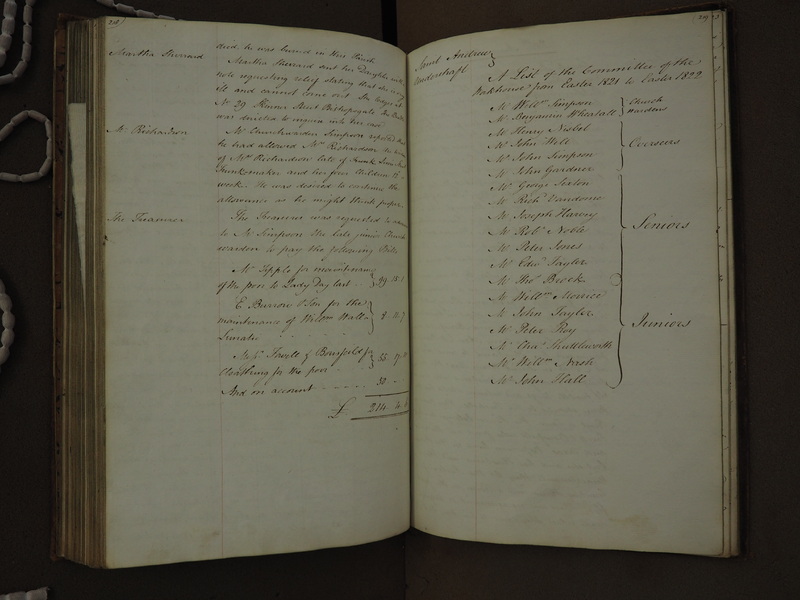 died, he was buried in this Parish
Martha Sherrard
Martha Sherrard sent her Daughter with
note requesting relief stating that she was
ill and cannot come out She lodges at
No 29 Street Bishopsgate The
was desired to inquire into her case
Mrs Richardson
Mr Churchwarden Simpson reported that
he had allowed Mrs Richardson the
of Mr Richardson late of
Trunkmaker and her five Children 12
week. He was desired to continue the
allowance as he might think proper
The Treasurer
The Treasurer was requested to
to Mr Simpson the late junior Church
warden to pay the following Bills
Mr Tipple for maintenance
of the poor to Lady Day last
E. Burrow & Son for the
maintenance of Wilson
Lunatic
Messrs &
Cloathing for the poor
And on account 30 -
£ 214
Saint Andrew
Undershaft
A List of the Committee of the
Workhouse from Easter 1821 to Easter 1822
Mr Willm Simpson
Mr Benjamin Wheatall
Church
Wardens
Mr Henry Nisbet
Mr John Well
Mr John Simpson
Mr John Gardner
Overseers
Mr George Sexton
Mr Richd Vandome
Mr Joseph Harvey
Mr Robt Noble
Mr Peter Jones
Mr Edwd Taylor
Mr Thos Brook
Seniors
Mr Willm
Mr John Taylor
Mr Peter Roy
Mr Chas Shuttleworth
Mr Willm Nash
Mr John Hall
Juniors